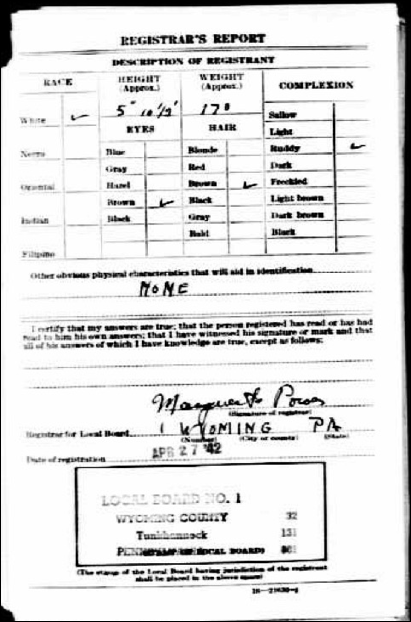 REGISTRAR'S REPORT
DESCRIPTION OF REGISTRANT
RACE HEIGHT (Approx.) WEIGHT (Approx.) COMPLEXION
5" 10 1/2' 170
White ✓ EYES HAIR Sallow
Light
Negro Blue Blonde Ruddy ✓
Gray Red Dark
Oriental Hazel Brown ✓ Freckled
Brown ✓ Black Light brown
Indian Black Gray Dark brown
Bald Black
Filipino
Other obvious physical characteristics that will aid in identification
NONE
I certify that my answers are true; that the person registered has read or has had
read to him his own answers; that I have witnessed his signature or mark and that
all of his answers of which I have knowledge are true, except as follows:
(Signature of registrar)
Registrar for Local Board 1 WYOMING PA
(Number) (City or county) (State)
Date of registration APR 27 '42
LOCAL BOARD NO. 1
WYOMING COUNTY 32
Tunkhannock 131
(LOCAL BOARD)
(The stamp of the Local Board having jurisdiction of the registrant
shall be placed in the above space)